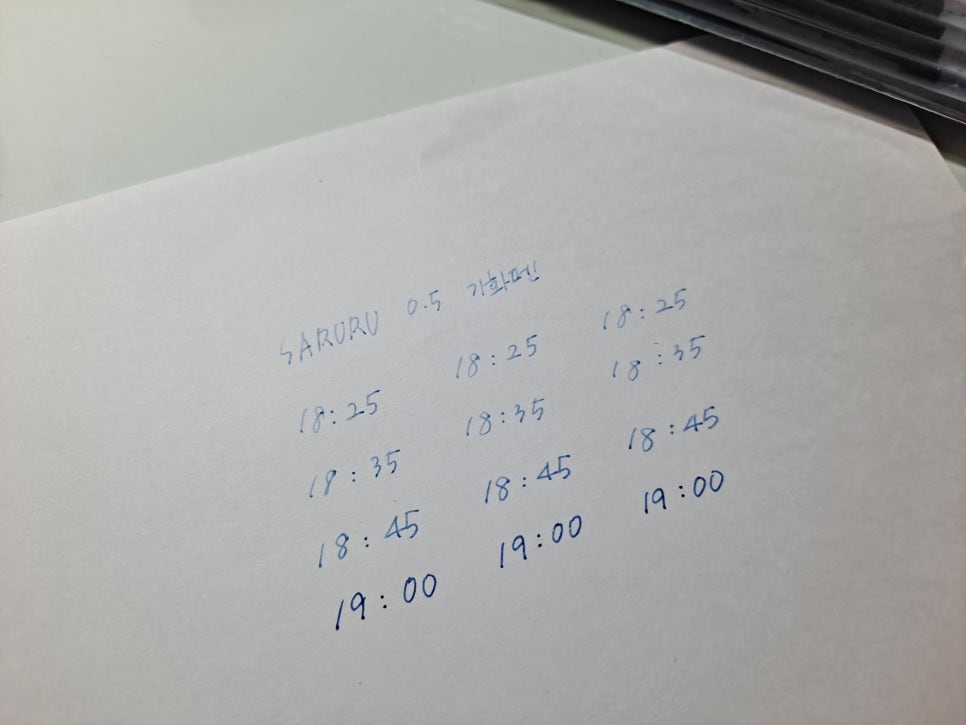 SARURU 0.5 기화펜
18:25 18:25 18:25
18:35 18:35 18:35
18:45 18:45 18:45
19:00 19:00 19:00